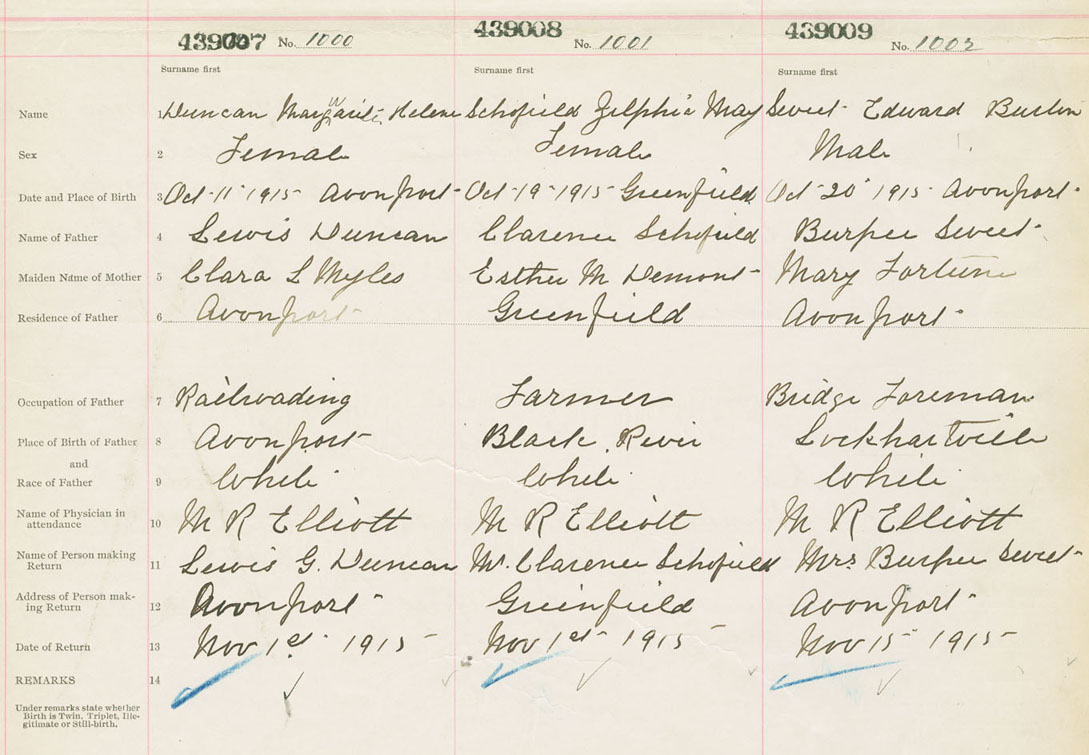 439007 No. 1000 439008 No. 1001 439009 No. 1002
Surname first Surname first Surname first
Name 1 Duncan Margwarite Helene Schofield Zilphia May Sweet Edward Burton
Sex 2 Female Female Male
Date and Place of Birth 3 Oct 11 1915 Avonport Oct 19 1915 Greenfield Oct 20 1915 Avonport
Name of Father 4 Lewis Duncan Clarence Schofield Burpee Sweet
Maiden Name of Mother 5 Clara L Myles Esther M Demont Mary Fortune
Residence of Father 6 Avonport Greenfield Avonport
Occupation of Father 7 Railroading Farmer Bridge Foreman
Place of Birth of Father 8 Avonport Black River Lockhartville
and
Race of Father 9 White White White
Name of Physician in
attendance 10 M R Elliott M R Elliott M R Elliott
Name of Person making
Return 11 Lewis G. Duncan Mr. Clarence Schofield Mrs. Burpee Sweet
Address of Person mak-
ing Return 12 Avonport Greenfield Avonport
Date of Return 13 Nov 1st 1915 Nov 1st 1915 Nov 15 1915
REMARKS 14
Under remarks state whether
Birth is Twin, Triplet, Ille-
gitimate or Still-birth.